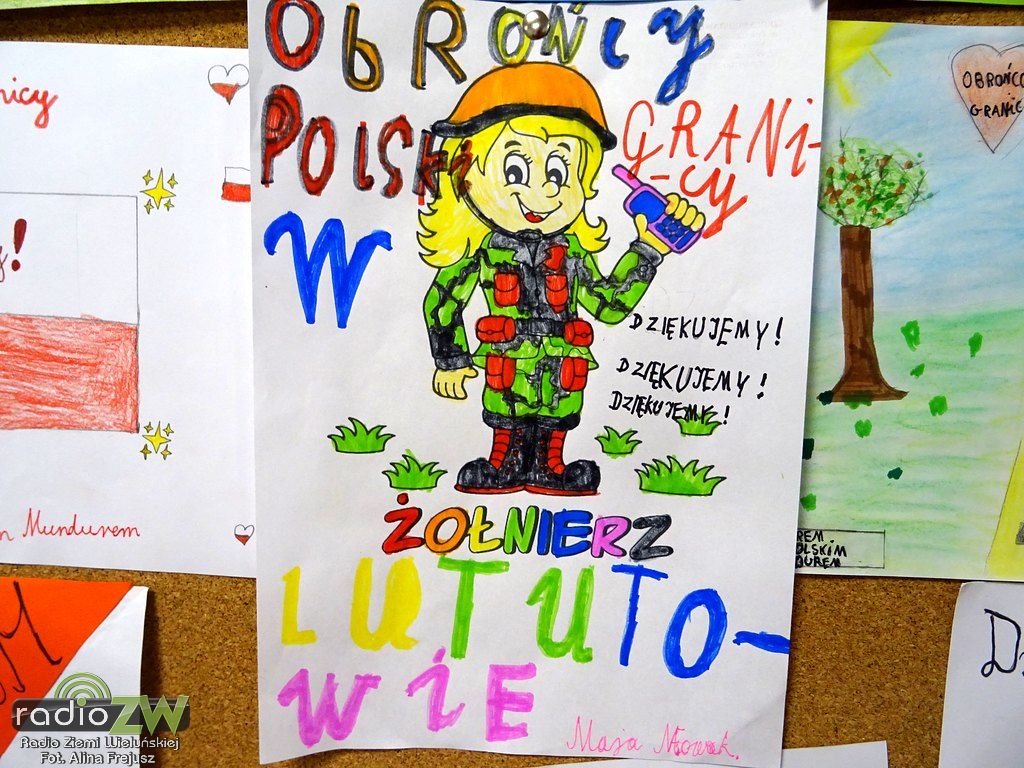 ObROŃCY
POlSki
GRANi-
-cy
W
DZIĘKUJEMY!
DZIĘKUJEMY!
DZIĘKUJEMY!
ŻOŁNIERZ
LUTUTO-
WiE
Maja
nicy
!
Mundurem
OBROŃCO
GRANIC
REM
OLSKIM
DUREM
M
radioZW
Radio Ziemi Wieluńskiej
Fot. Alina Frejusz